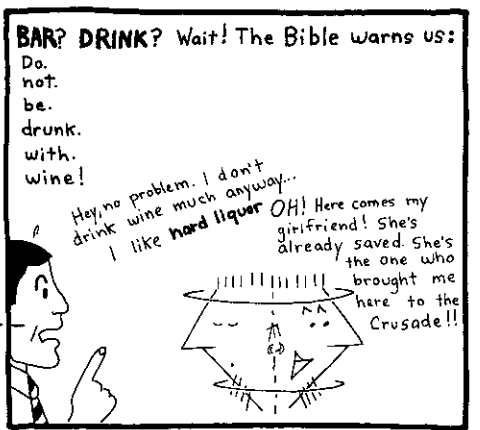 BAR? DRINK? Wait! The Bible warns us:
Do.
not.
be.
drunk.
with.
wine!
Hey, no problem. I don't
drink wine much anyway...
I like hard liquor
OH! Here comes my
girlfriend! She's
already saved. She's
the one who
brought me
here to the
Crusade!!